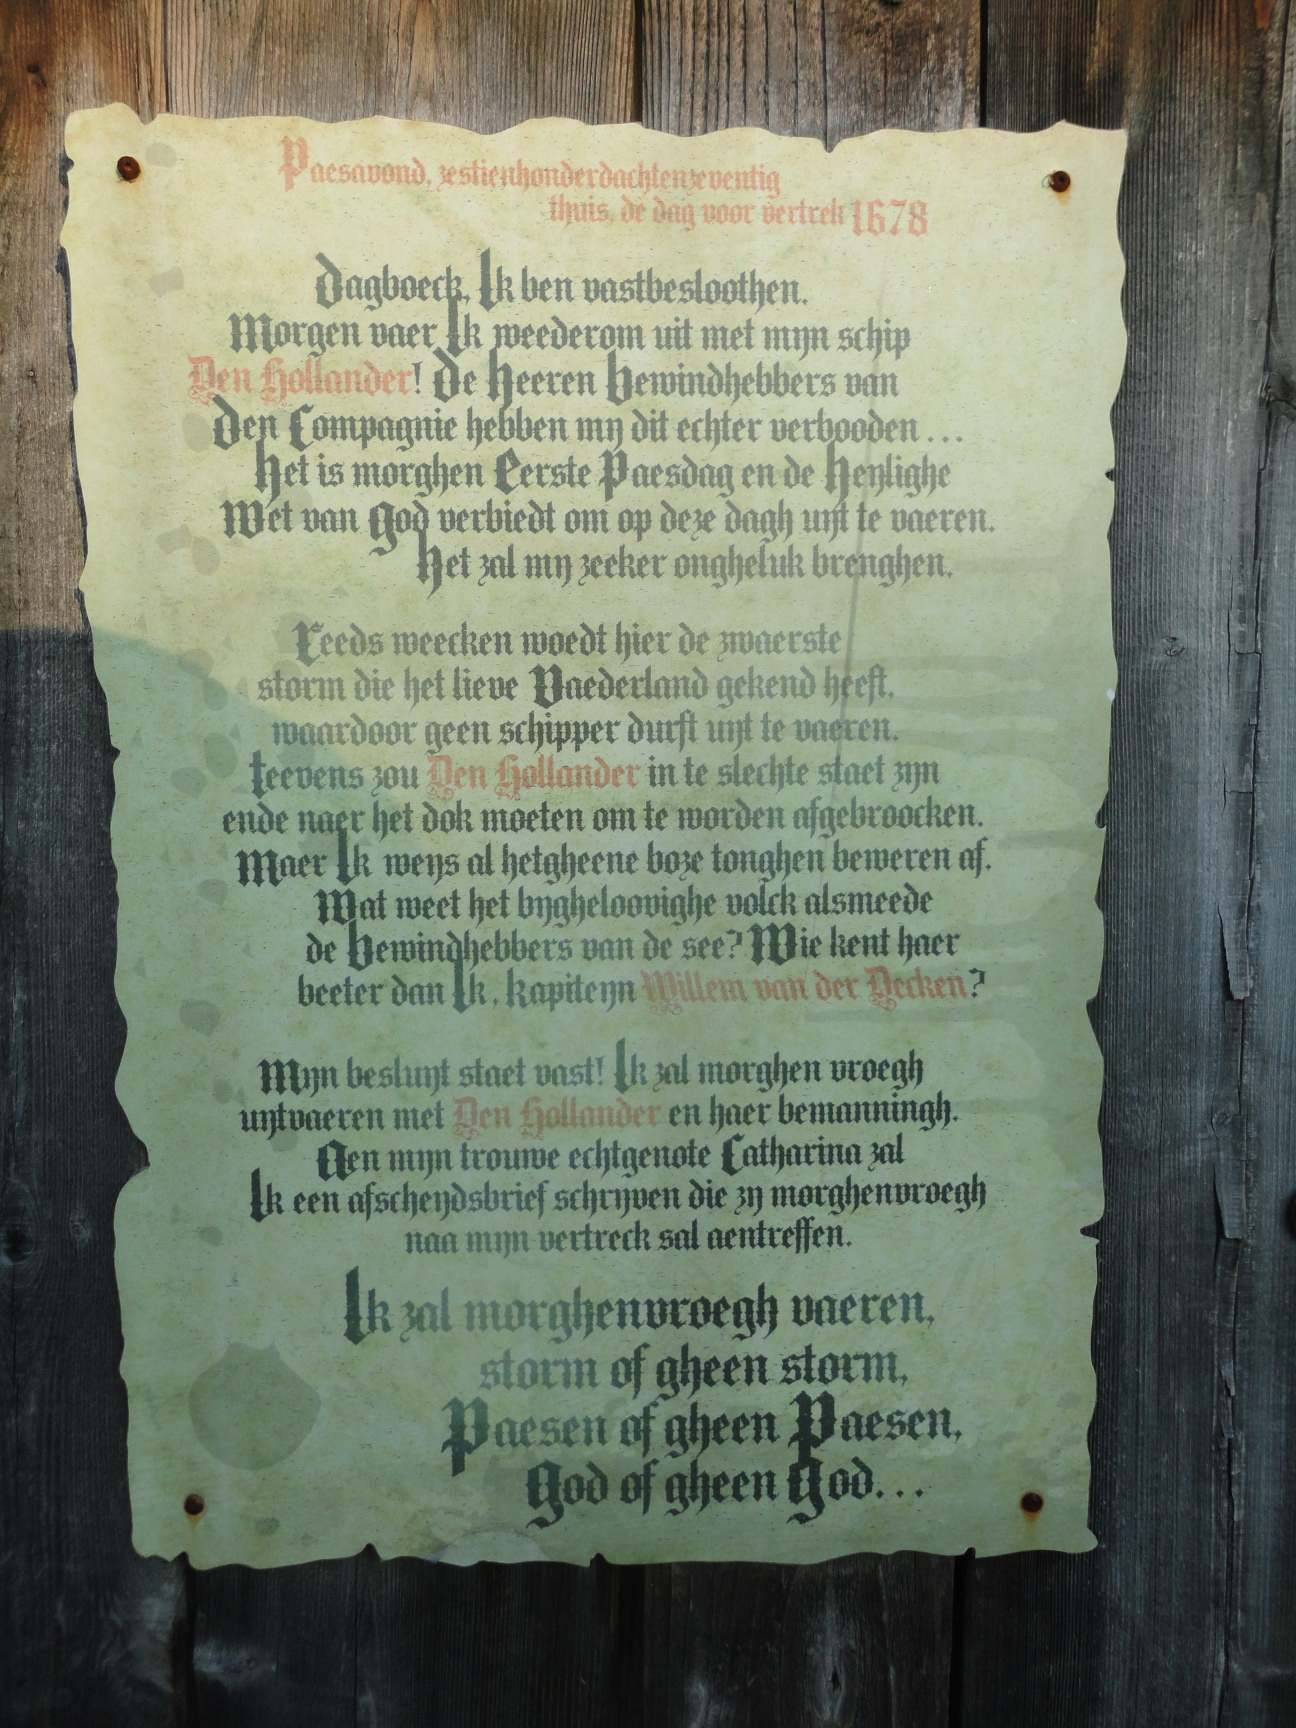 Paesavond, zestienhonderdachtenzeventig
thuis, de dag voor vertrek 1678
Dagboeck, Ik ben vastbesloothen.
Morgen vaer Ik weederom uit met mijn schip
Den Hollander! De Heeren Bewindhebbers van
Den Compagnie hebben mij dit echter verbooden...
Het is morghen Eerste Paesdag en de Heylighe
Wet van God verbiedt om op deze dagh uyt te vaeren.
Het zal mij zeeker ongheluk brenghen.
Reeds weecken woedt hier de zwaerste
storm die het lieve Vaederland gekend heeft,
waardoor geen schipper durft uyt te vaeren.
Teevens zou Den Hollander in te slechte staet zijn
ende naer het dok moeten om te worden afgebroocken.
Maer Ik weys al hetgheene boze tonghen beweren af.
Wat weet het bijgheloovighe volck alsmeede
de Bewindhebbers van de see? Wie kent haer
beeter dan Ik, Kapiteyn Willem van der Decken?
Mijn besluyt staet vast! Ik zal morghen vroegh
uytvaeren met Den Hollander en haer bemanningh.
Aen mijn trouwe echtgenote Catharina zal
Ik een afscheydsbrief schrijven die zij morghenvroegh
naa mijn vertreck sal aentreffen.
Ik zal morghenvroegh vaeren,
storm of gheen storm,
Paesen of gheen Paesen,
God of gheen God...